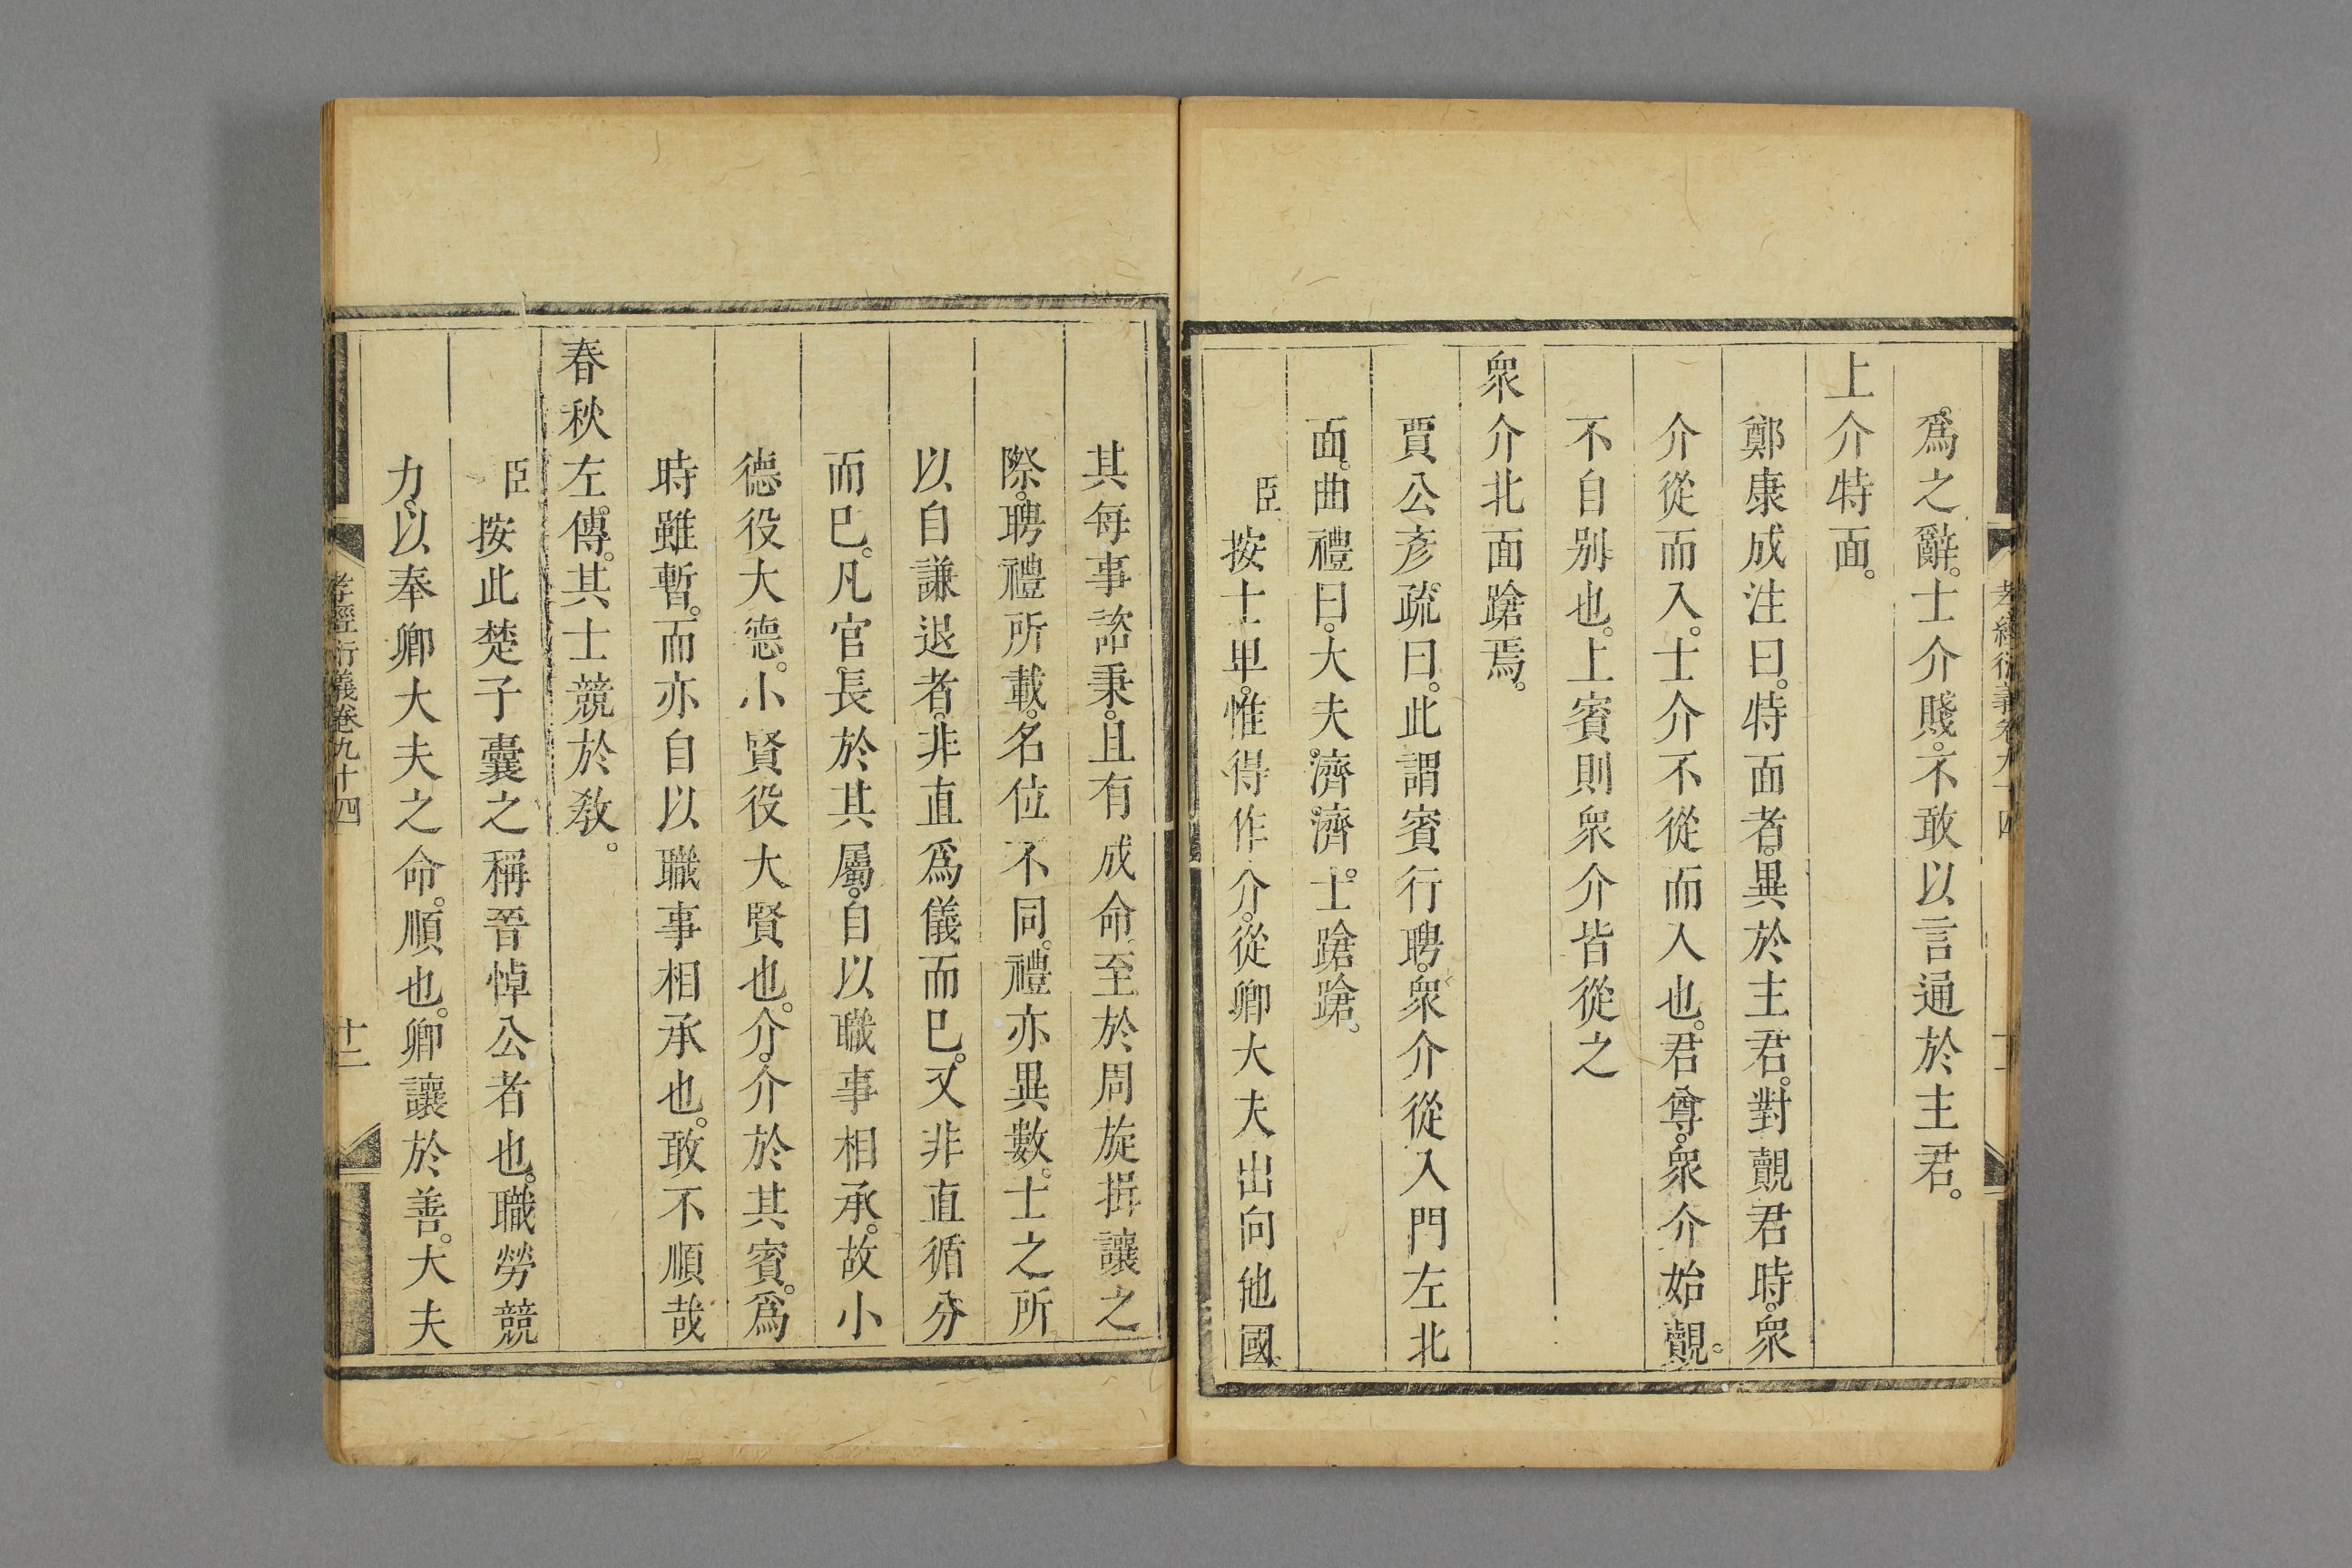 爲之辭。士介賤。不敢以言通於主君。
上介特面。
鄭康成注曰。特面者。異於主君。對覿君時。衆
介從而入。士介不從而入也。君尊。衆介始覿。
不自别也。上賓則衆介皆從之
衆介北面蹌焉。
賈公彦疏曰。此謂賓行聘。衆介從入門左北
面。曲禮曰。大夫濟濟。士蹌蹌。
臣按士卑。惟得作介。從卿大夫出向他國
其每事諮秉。且有成命。至於周旋揖讓之
際。聘禮所載。名位不同。禮亦異數。士之所
以自謙退者。非直爲儀而已。又非直循分
而已。凡官長於其屬。自以職事相承。故小
德役大德。小賢役大賢也。介。介於其賓。爲
時雖暫。而亦自以職事相承也。敢不順哉
春秋左傳。其士競於教。
臣按此楚子囊之稱晉悼公者也。職勞競
力。以奉卿大夫之命。順也。卿讓於善。大夫
孝經衍義卷九十四
十二